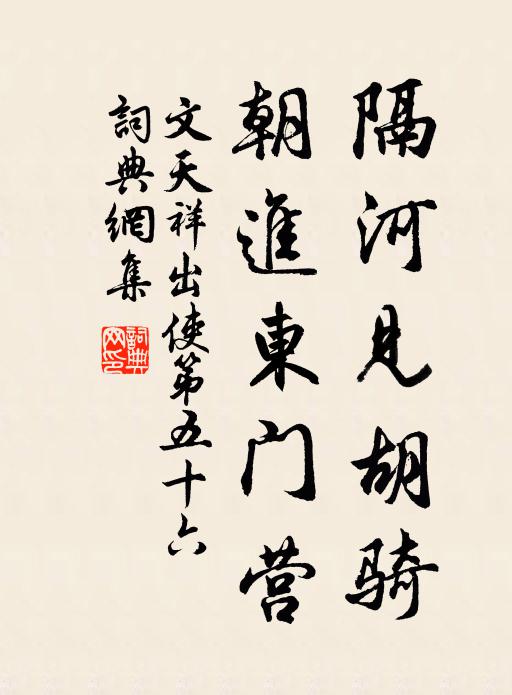 隔河见胡骑
朝進東门营
文天祥出使第五十六
詞典網集
詞典网印